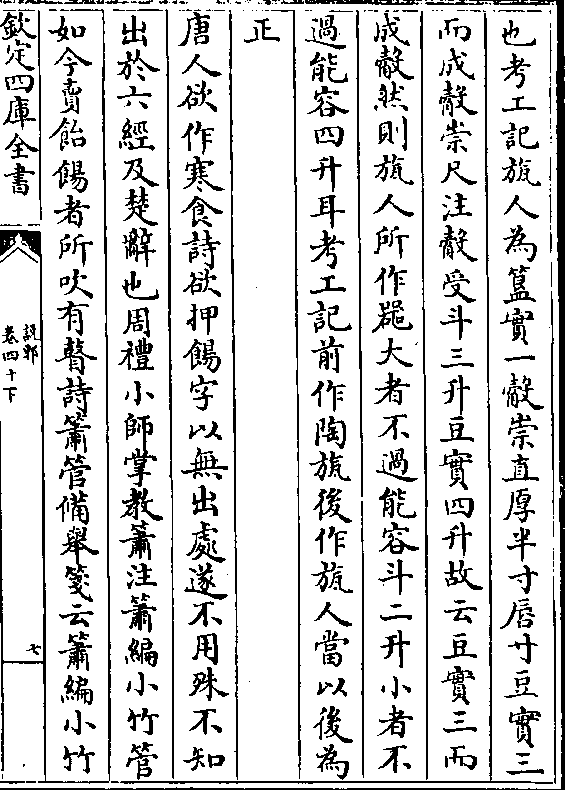 也考工記旊人為簋實一觳崇直厚半寸唇寸豆實三
而成觳崇尺注觳受斗三升豆實四升故云豆實三而
成觳然則旊人所作噐大者不過能容斗二升小者不
過能容四升耳考工記前作陶旊後作旊人當以後為
正
唐人欲作寒食詩欲押餳字以無出處遂不用殊不知
出於六經及楚辭也周禮小師掌教簫注簫編小竹管
如今賣飴餳者所吹有瞽詩簫管備舉箋云簫編小竹
欽定四庫全書
說郛
卷四十下
七